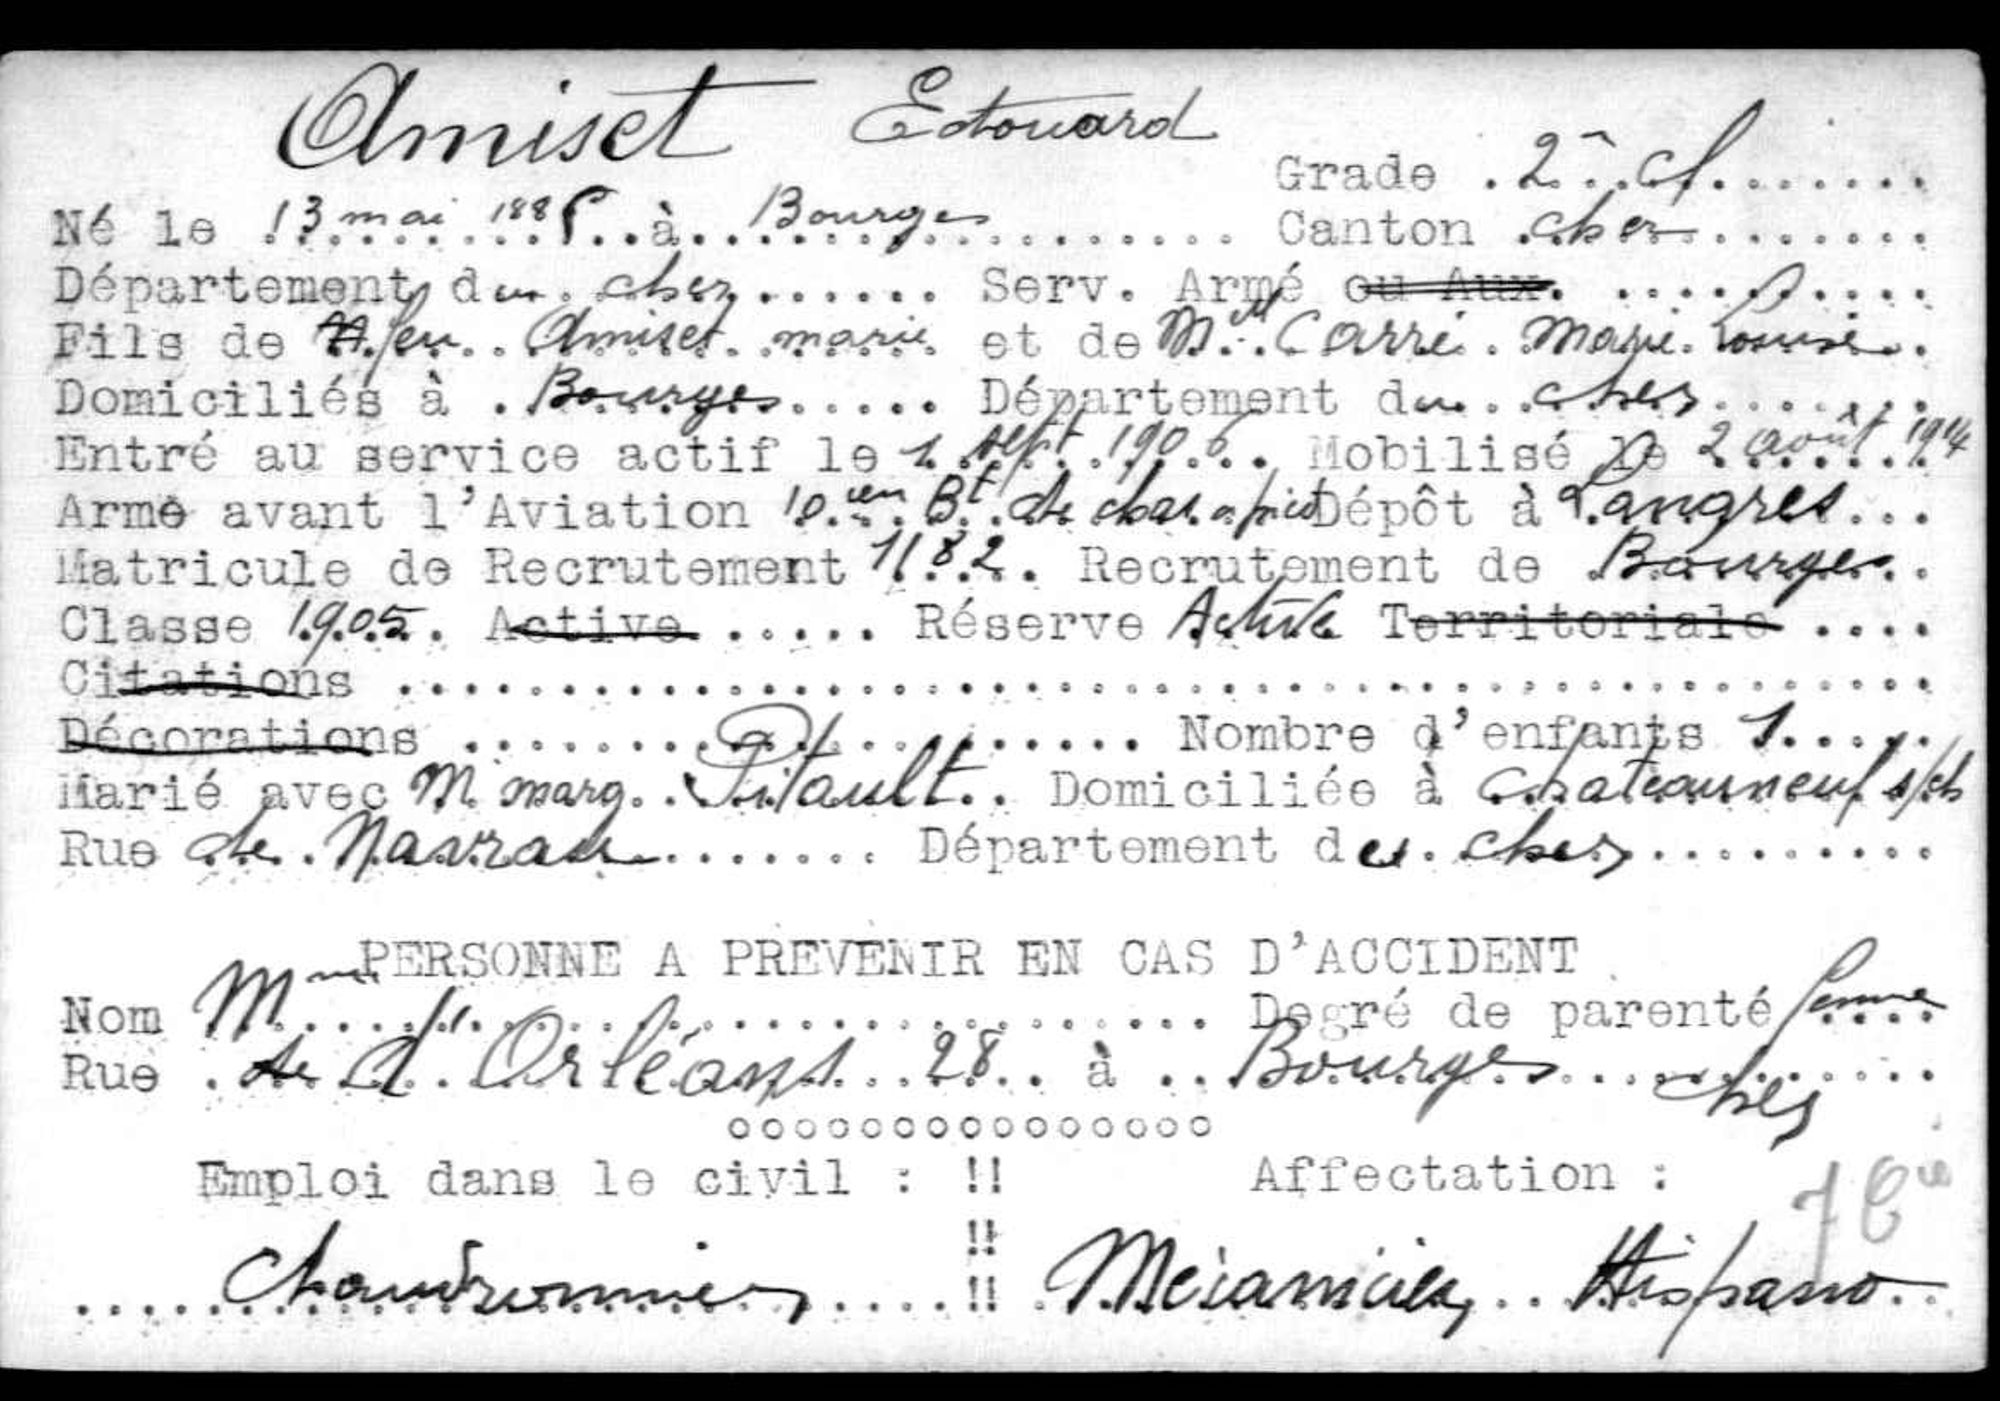 Amiset Edouard
Grade 2e cl
Né le 13 mai 1885 à Bourges Canton cher
Département du cher Serv. Armé ou Aux.
Fils de feu Amiset marie et de Mme Carré Marie Louise
Domiciliés à Bourges Département du cher
Entré au service actif le 1 sept 1906 Mobilisé le 2 août 1914
Arme avant l'Aviation 10ien Bt de chas. a pied Dépôt à Langres
Matricule de Recrutement 1182. Recrutement de Bourges
Classe 1905. Active Réserve Active Territoriale
Citations
Décorations Nombre d'enfants 1
Marié avec M marg. Pitault Domiciliée à chateauneuf s/ch
Rue de Département du cher
PERSONNE A PREVENIR EN CAS D'ACCIDENT
Nom Mme " Degré de parenté femme
Rue de d'Orléans 28 à Bourges
cher
oooooooooooooooo
Emploi dans le civil : !! Affectation :
7 Cie
!!
chaudronnier !! Mécanicien Hispano